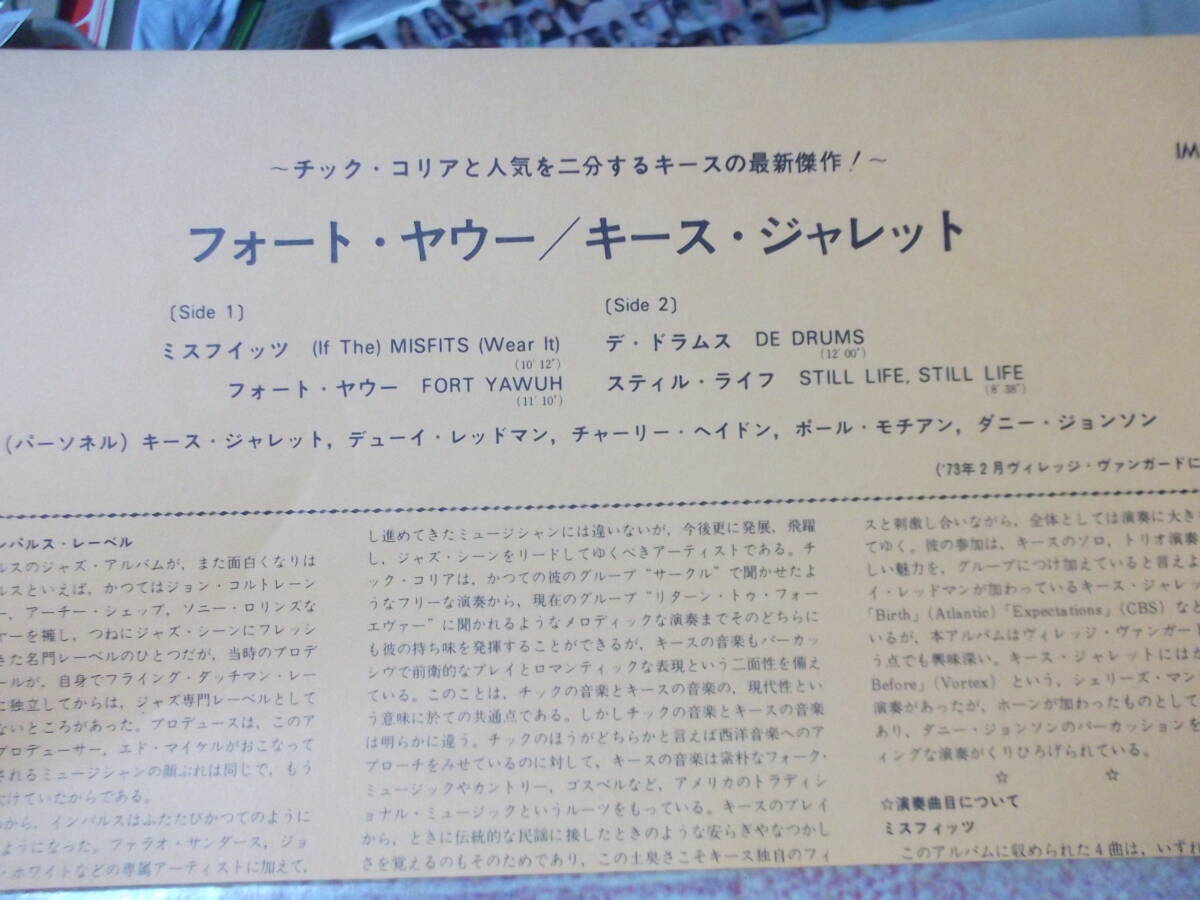 〜チック・コリアと人気を二分するキースの最新傑作!〜
IM
フォート・ヤウー/キース・ジャレット
〔Side 1〕
ミスフイッツ (If The) MISFITS (Wear It)
(10′12″)
フォート・ヤウー FORT YAWUH
(11′10″)
〔Side 2〕
デ・ドラムス DE DRUMS
(12′00″)
スティル・ライフ STILL LIFE, STILL LIFE
(8′38″)
(パーソネル) キース・ジャレット, デューイ・レッドマン, チャーリー・ヘイドン, ポール・モチアン, ダニー・ジョンソン
('73年2月ヴィレッジ・ヴァンガードに
ンパルス・レーベル
ルスのジャズ・アルバムが、また面白くなりは
ルスといえば、かつてはジョン・コルトレーン
ー、アーチー・シェップ、ソニー・ロリンズな
ヤーを擁し、つねにジャズ・シーンにフレッシ
きた名門レーベルのひとつだが、当時のプロデ
ールが、自身でフライング・ダッチマン・レー
に独立してからは、ジャズ専門レーベルとして
ないところがあった。プロデュースは、このア
プロデューサー、エド・マイケルがおこなって
されるミュージシャンの顔ぶれは同じで、もう
欠けていたからである。
から、インパルスはふたたびかつてのように
ようになった。ファラオ・サンダース、ジョ
・ホワイトなどの専属アーティストに加えて、
し進めてきたミュージシャンには違いないが、今後更に発展、飛躍
し、ジャズ・シーンをリードしてゆくべきアーティストである。チ
ック・コリアは、かつての彼のグループ“サークル”で聞かせたよ
うなフリーな演奏から、現在のグループ“リターン・トゥ・フォー
エヴァー”に聞かれるようなメロディックな演奏までそのどちらに
も彼の持ち味を発揮することができるが、キースの音楽もパーカッ
シヴで前衛的なプレイとロマンティックな表現という二面性を備え
ている。このことは、チックの音楽とキースの音楽の、現代性とい
う意味に於ての共通点である。しかしチックの音楽とキースの音楽
は明らかに違う。チックのほうがどちらかと言えば西洋音楽へのア
プローチをみせているのに対して、キースの音楽は素朴なフォーク・
ミュージックやカントリー、ゴスペルなど、アメリカのトラディシ
ョナル・ミュージックというルーツをもっている。キースのプレイ
から、ときに伝統的な民謡に接したときのような安らぎやなつかし
さを覚えるのもそのためであり、この土臭さこそキース独自のフィ
スと刺激し合いながら、全体としては演奏に大き
てゆく。彼の参加は、キースのソロ、トリオ演奏
しい魅力を、グループにつけ加えていると言えよ
イ・レッドマンが加わっているキース・ジャレッ
「Birth」(Atlantic)「Expectations」(CBS) など
いるが、本アルバムはヴィレッジ・ヴァンガード
う点でも興味深い。キース・ジャレットにはか
Before」(Vortex) という、シェリーズ・マン
演奏があったが、ホーンが加わったものとして
あり、ダニー・ジョンソンのパーカッションを
ィングな演奏がくりひろげられている。
☆ ☆
☆演奏曲目について
ミスフィッツ
このアルバムに収められた4曲は、いずれ